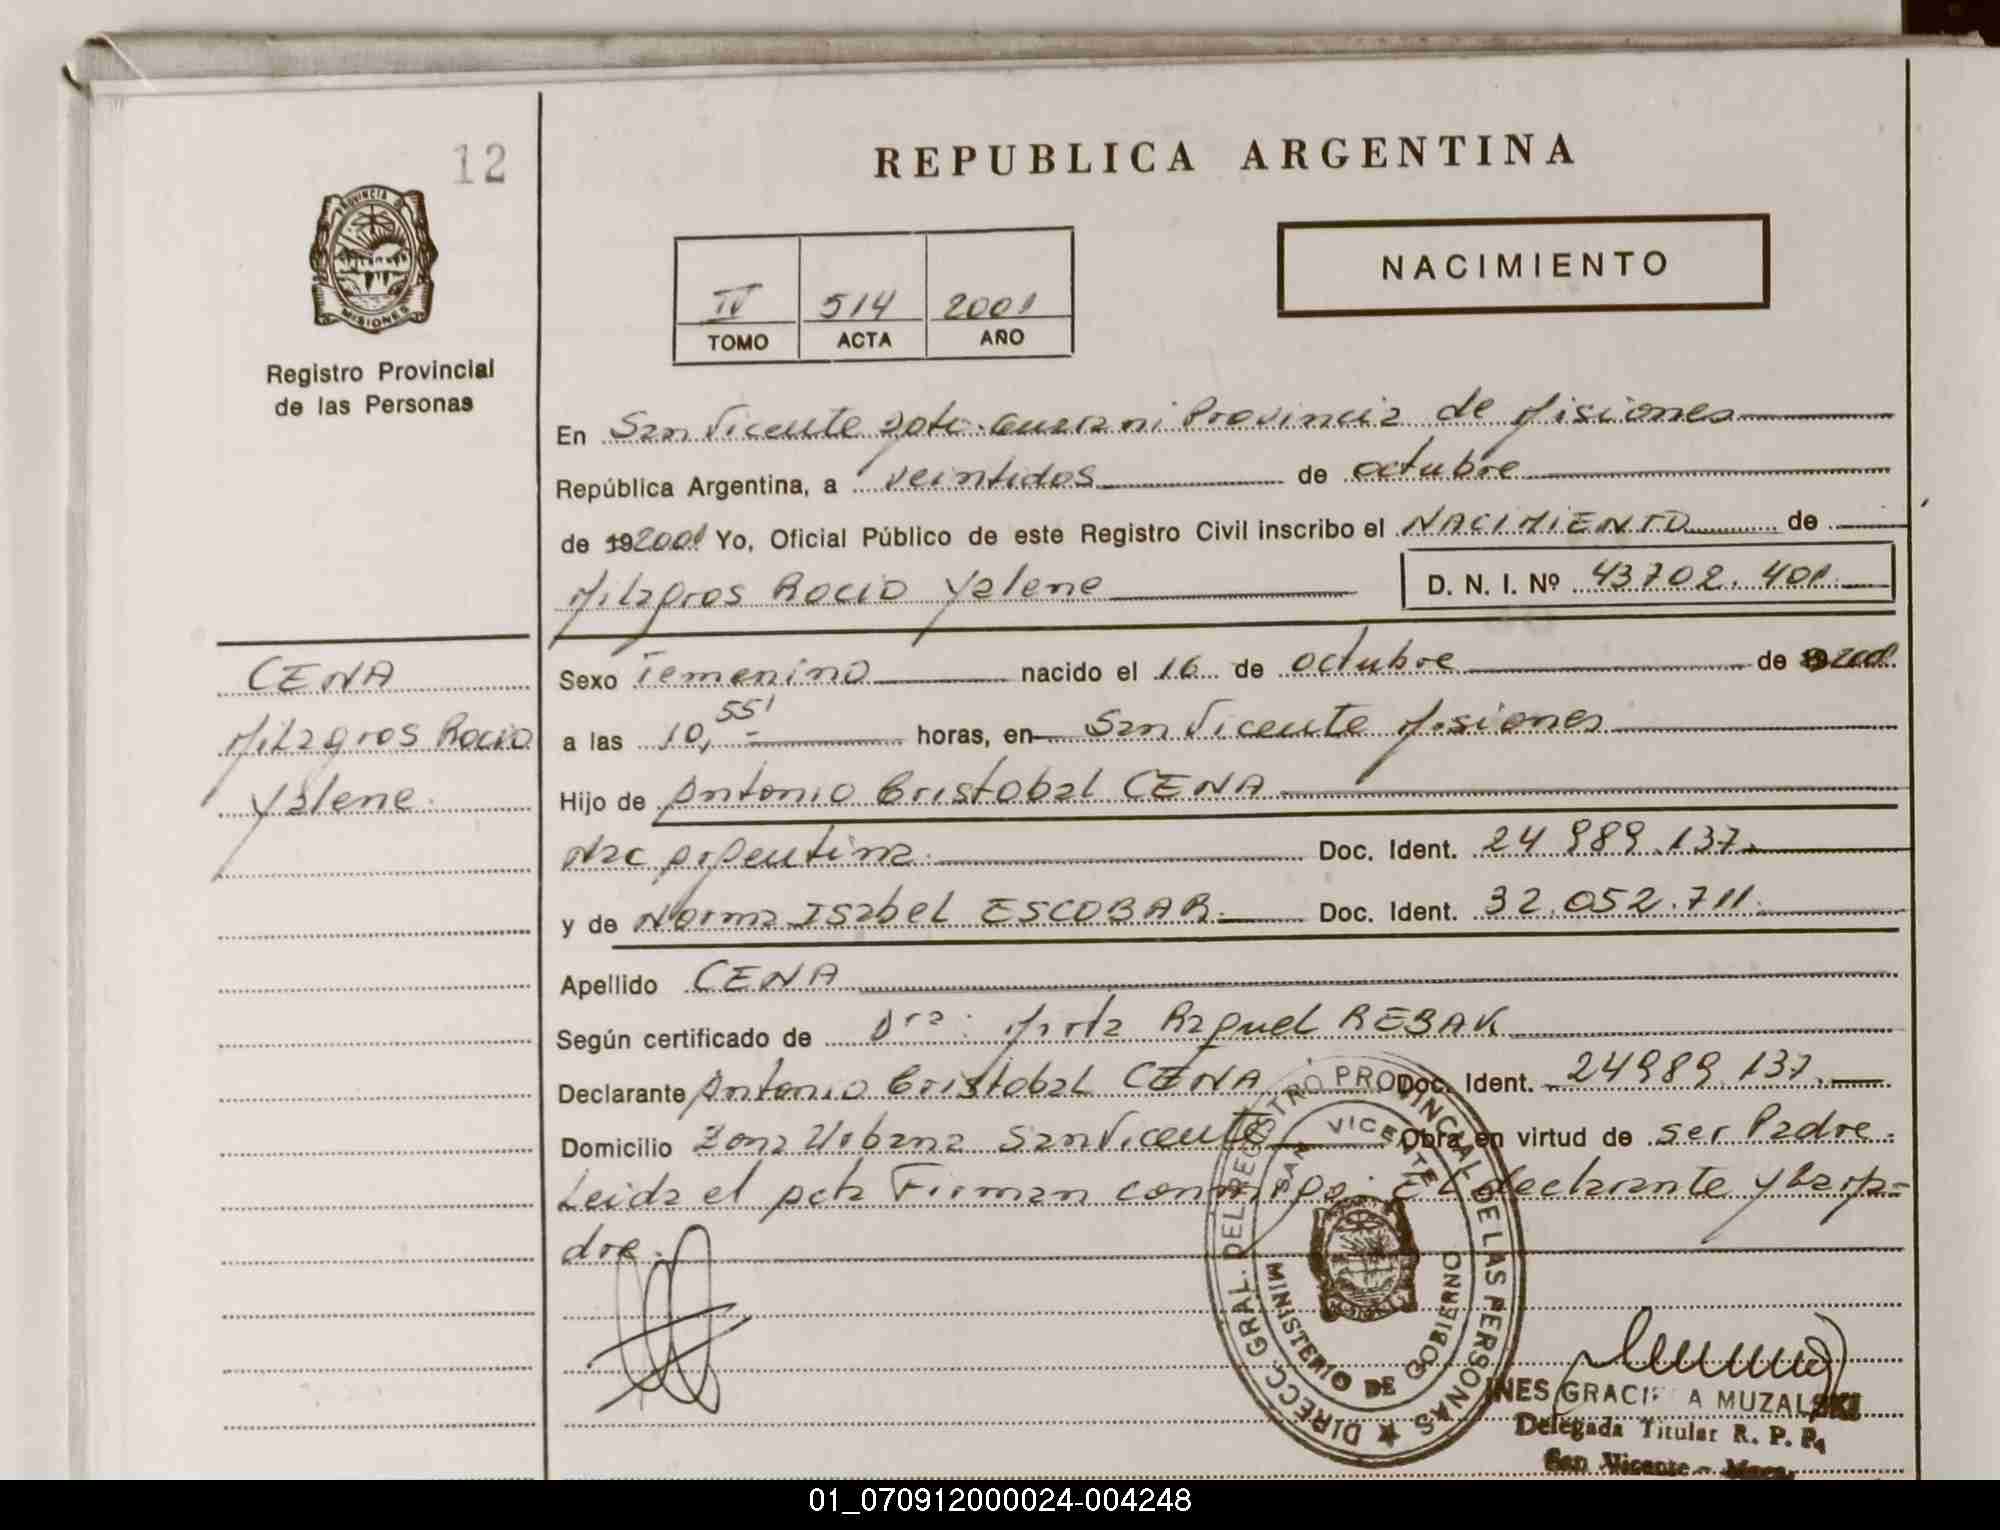 12
REPUBLICA ARGENTINA
PROVINCIA DE
MISIONES
Registro Provincial
de las Personas
IV 514 2001
TOMO ACTA AÑO
NACIMIENTO
En San Vicente Dpto. Guarani Provincia de Misiones
República Argentina, a veintidos de octubre
de 192001 Yo, Oficial Público de este Registro Civil inscribo el NACIMIENTO de
Milagros Rocio Yalene D. N. I. Nº 43702.401
CENA
Milagros Rocio
Yalene
Sexo Femenino nacido el 16 de octubre de 2001
a las 10,55' horas, en San Vicente Misiones
Hijo de Antonio Cristobal CENA
Nac Argentina. Doc. Ident. 24 989.137.
y de Norma Isabel ESCOBAR. Doc. Ident. 32.052.711.
Apellido CENA
Según certificado de Dra: Mirta Raquel REBAK
Declarante Antonio Cristobal CENA Doc. Ident. 24989.137.
Domicilio Zona Urbana San Vicente Obra en virtud de ser Padre.
Leida el acta Firman conmigo: El declarante y la Ma=
dre.
DIRECC. GRAL. DEL REGISTRO PROVINCIAL DE LAS PERSONAS
SAN VICENTE
MINISTERIO DE GOBIERNO
INES GRACI A MUZALSKI
Delegada Titular R. P. P.
San Vicente - Mnes.
01_070912000024-004248